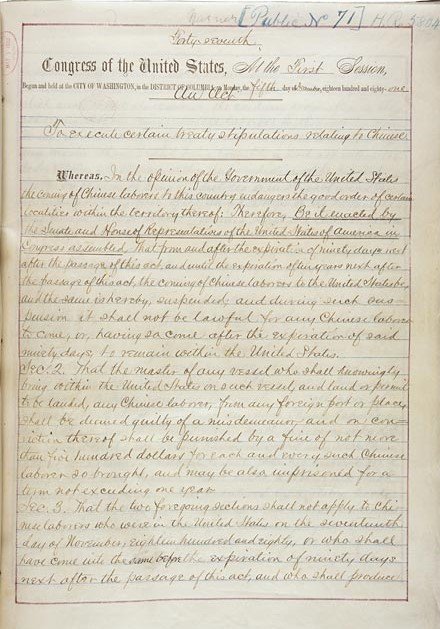 [Public No 71] H.R. 5804
Forty-seventh
Congress of the United States, At the First Session,
Begun and held at the CITY OF WASHINGTON, in the DISTRICT OF COLUMBIA, on Monday, the fifth day of December, eighteen hundred and eighty-one
An Act
To execute certain treaty stipulations relating to Chinese
Whereas, In the opinion of the Government of the United States
the coming of Chinese laborers to this country endangers the good order of certain
localities within the territory thereof; Therefore, Be it enacted by
the Senate and House of Representatives of the United States of America in
Congress assembled, That from and after the expiration of ninety days next
after the passage of this act, and until the expiration of ten years next after
the passage of this act, the coming of Chinese laborers to the United States be,
and the same is hereby, suspended; and during such sus-
pension it shall not be lawful for any Chinese laborer
to come, or, having so come after the expiration of said
ninety days, to remain within the United States.
Sec. 2. That the master of any vessel who shall knowingly
bring within the United States on such vessel, and land or permit
to be landed, any Chinese laborer, from any foreign port or place,
shall be deemed guilty of a misdemeanor, and on con-
viction thereof shall be punished by a fine of not more
than five hundred dollars for each and every such Chinese
laborer so brought, and may be also imprisoned for a
term not exceeding one year.
Sec. 3. That the two foregoing sections shall not apply to Chi-
nese laborers who were in the United States on the seventeenth
day of November, eighteen hundred and eighty, or who shall
have come into the same before the expiration of ninety days
next after the passage of this act, and who shall produce